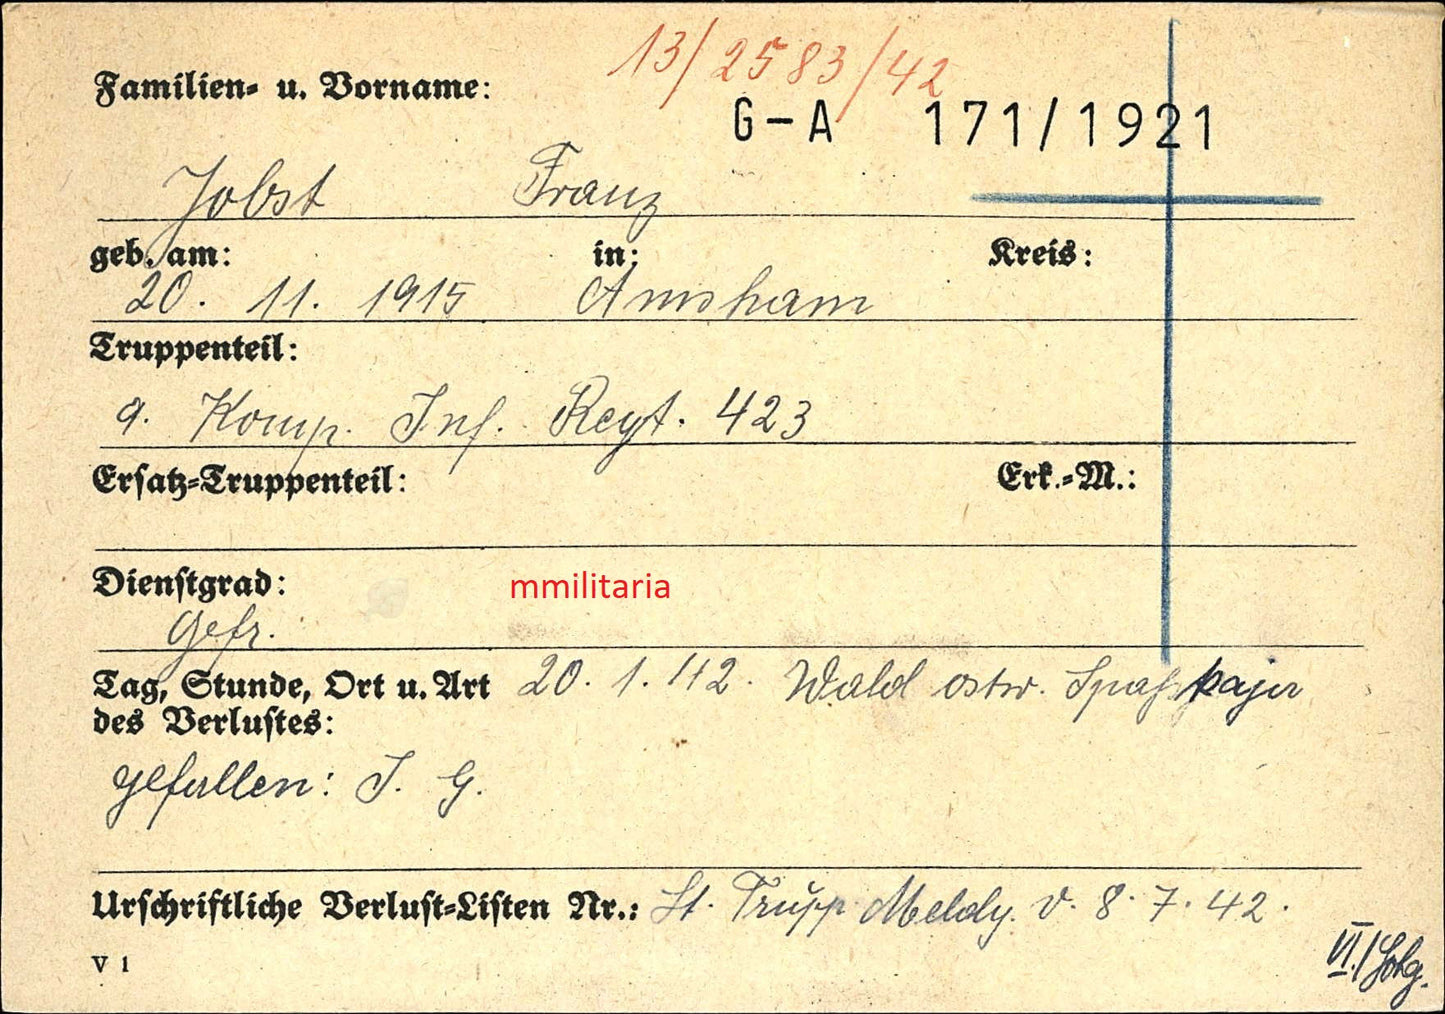 13/2583/42
Familien- u. Vorname:
G-A 171/1921
Jobst Franz
geb. am: in: Kreis:
20. 11. 1915 Amsham
Truppenteil:
9. Komp. Inf. Regt. 423
Ersatz-Truppenteil: Erk.-M.:
Dienstgrad:
mmilitaria
Gefr.
Tag, Stunde, Ort u. Art 20. 1. 42. Wald ostw.
des Verlustes:
gefallen: I. G.
Urschriftliche Verlust-Listen Nr.: lt. Trupp. Meldg. v. 8. 7. 42.
V 1
VI./